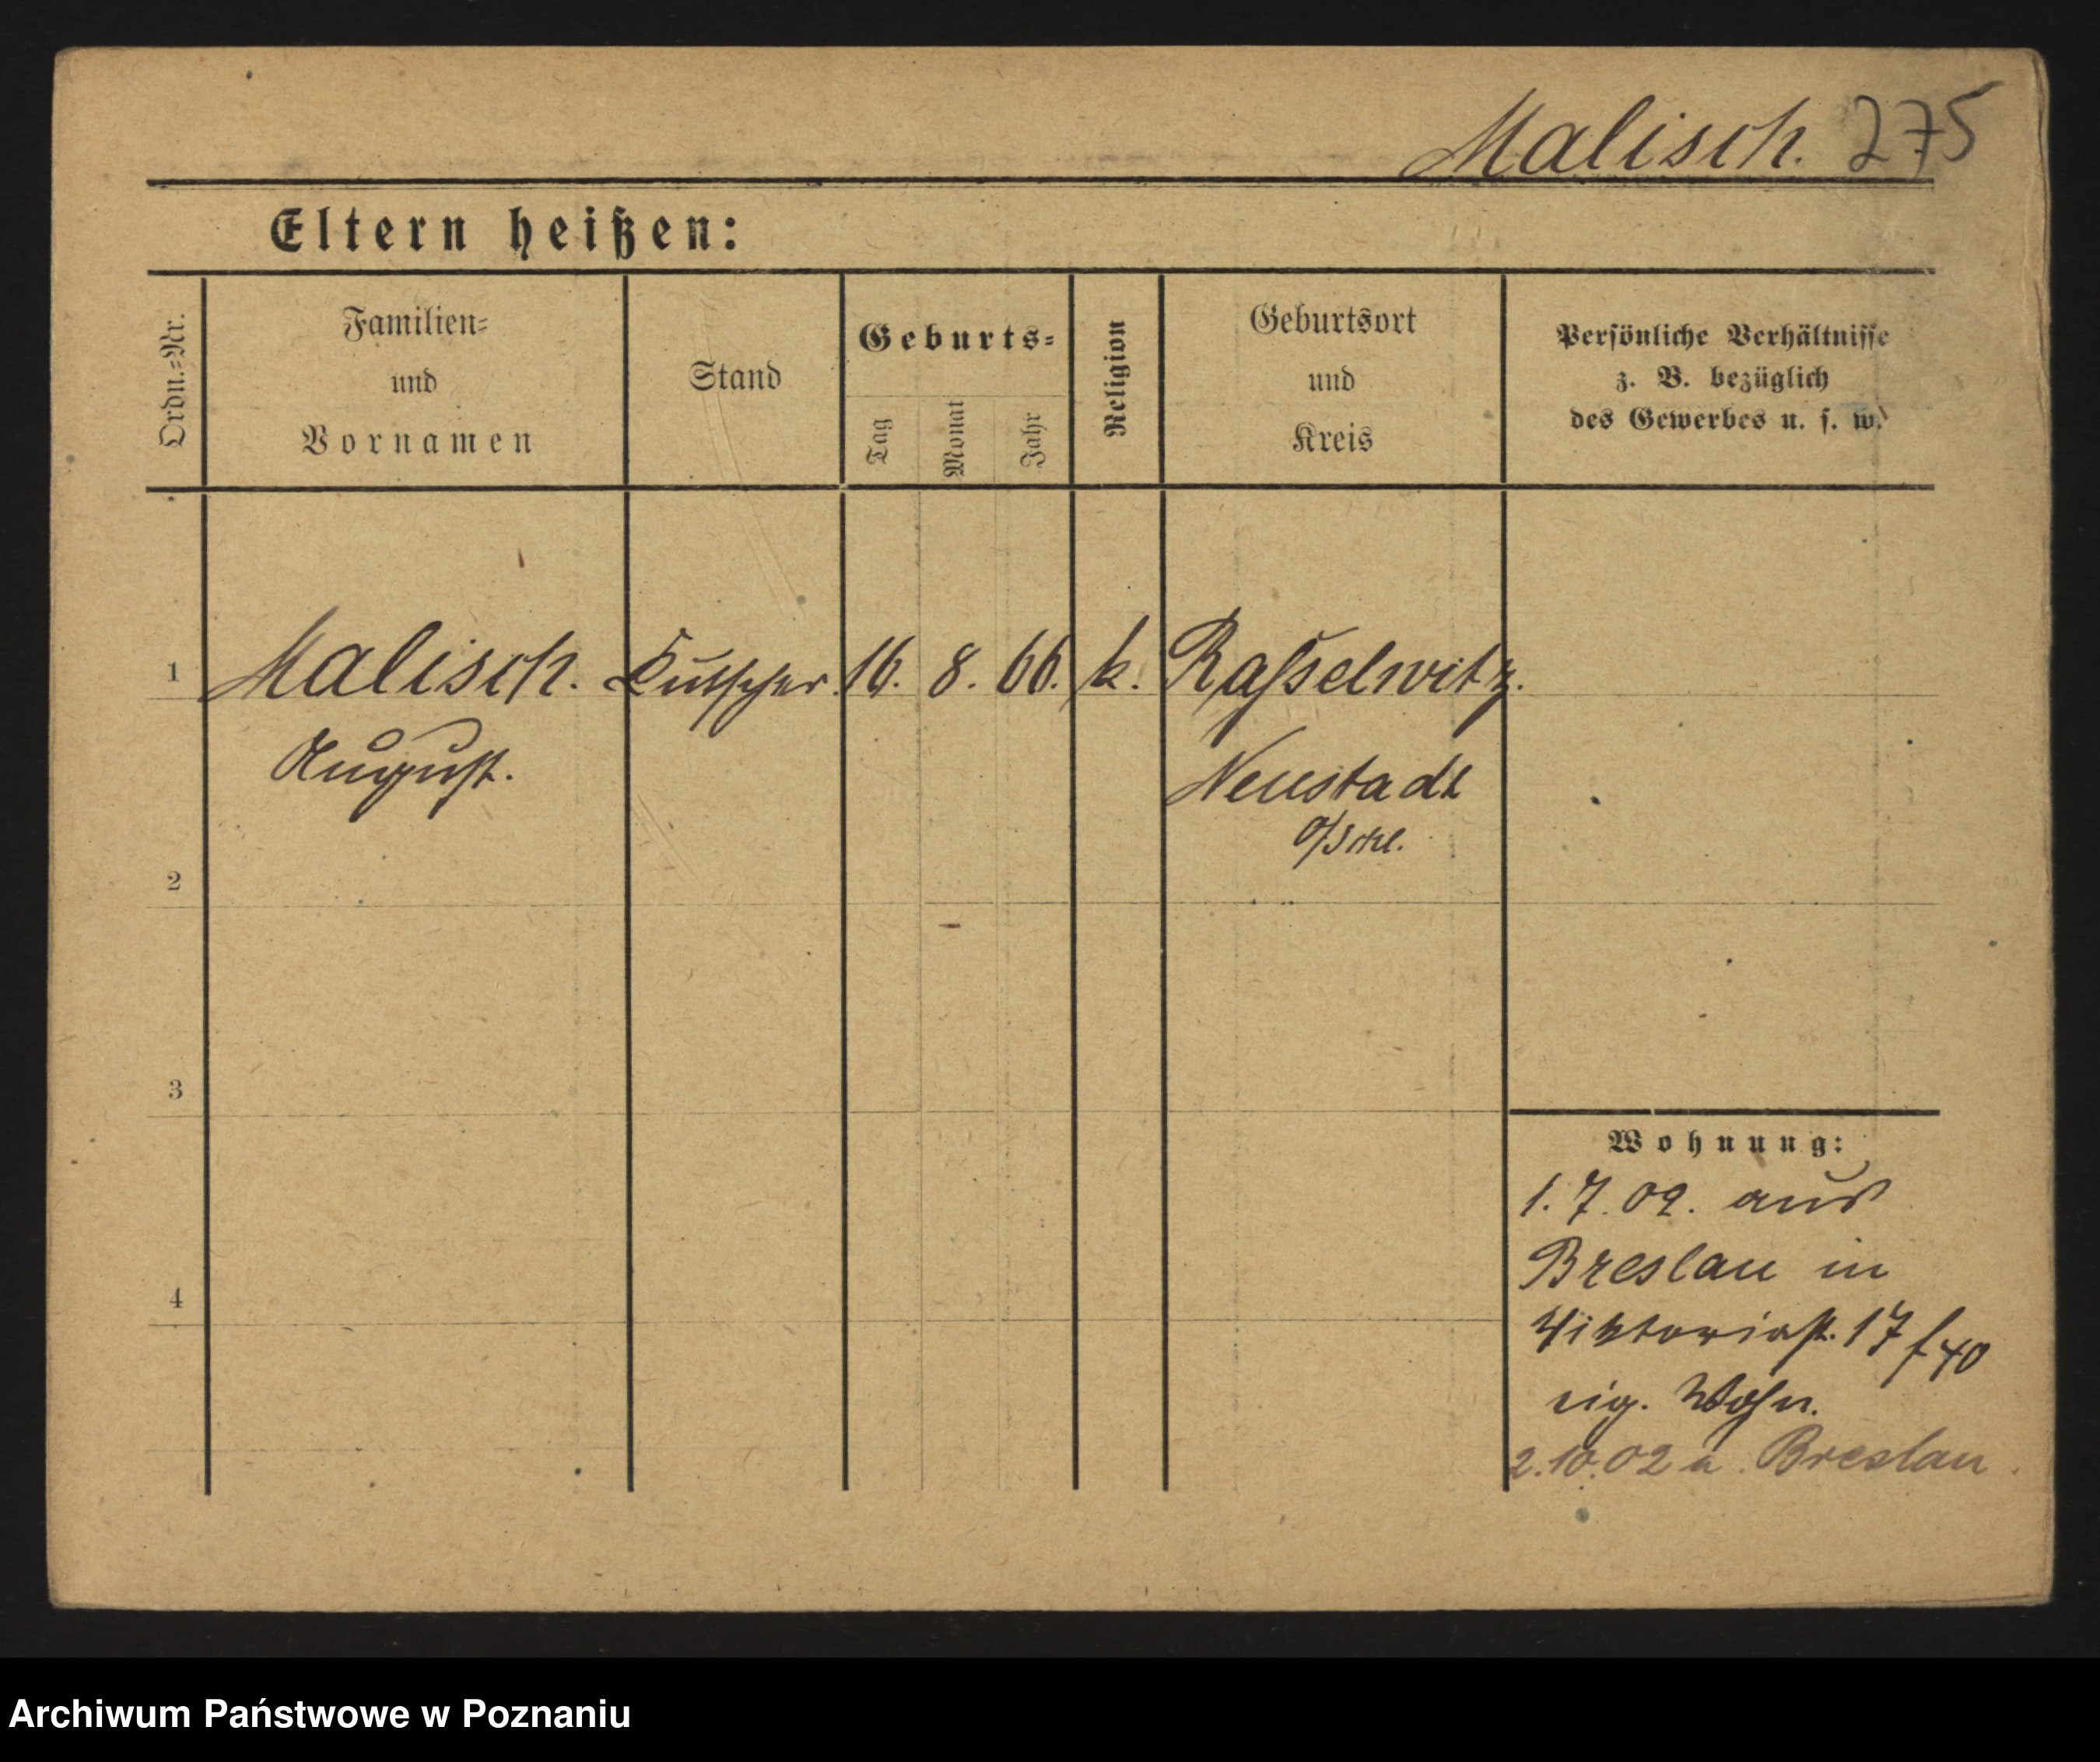 Malisch. 275
Eltern heißen:
Ordn.-Nr.
Familien-
und
Vornamen
Stand
Geburts-
Tag
Monat
Jahr
Religion
Geburtsort
und
Kreis
Persönliche Verhältnisse
z. B. bezüglich
des Gewerbes u. s. w.
1 Malisch. Kutscher. 16. 8. 66. k. Rasselwitz.
August.
Neustadt
O/Schl.
2
3
4
Wohnung:
1. 7. 02. aus
Breslau in
Viktoriast. 17
eig. Wohn.
2.10.02 n. Breslau
Archiwum Państwowe w Poznaniu